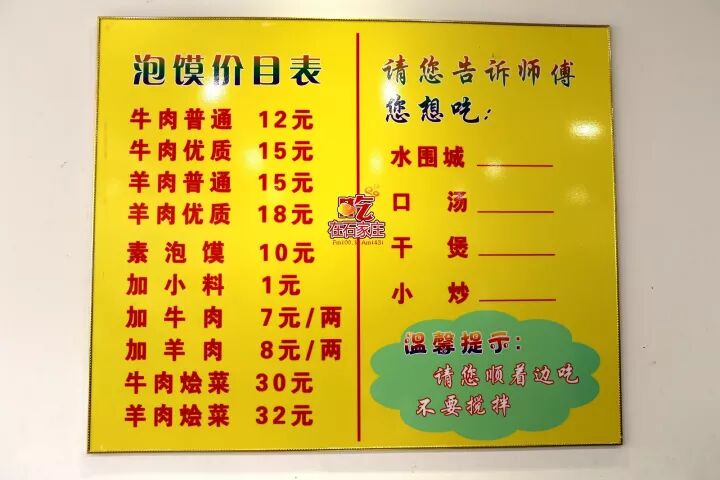 泡馍价目表
牛肉普通 12元
牛肉优质 15元
羊肉普通 15元
羊肉优质 18元
素泡馍 10元
加小料 1元
加牛肉 7元/两
加羊肉 8元/两
牛肉烩菜 30元
羊肉烩菜 32元
请您告诉师傅
您想吃：
水围城
口汤
干煲
小炒
温馨提示：
请您顺着边吃
不要搅拌
吃
在石家庄